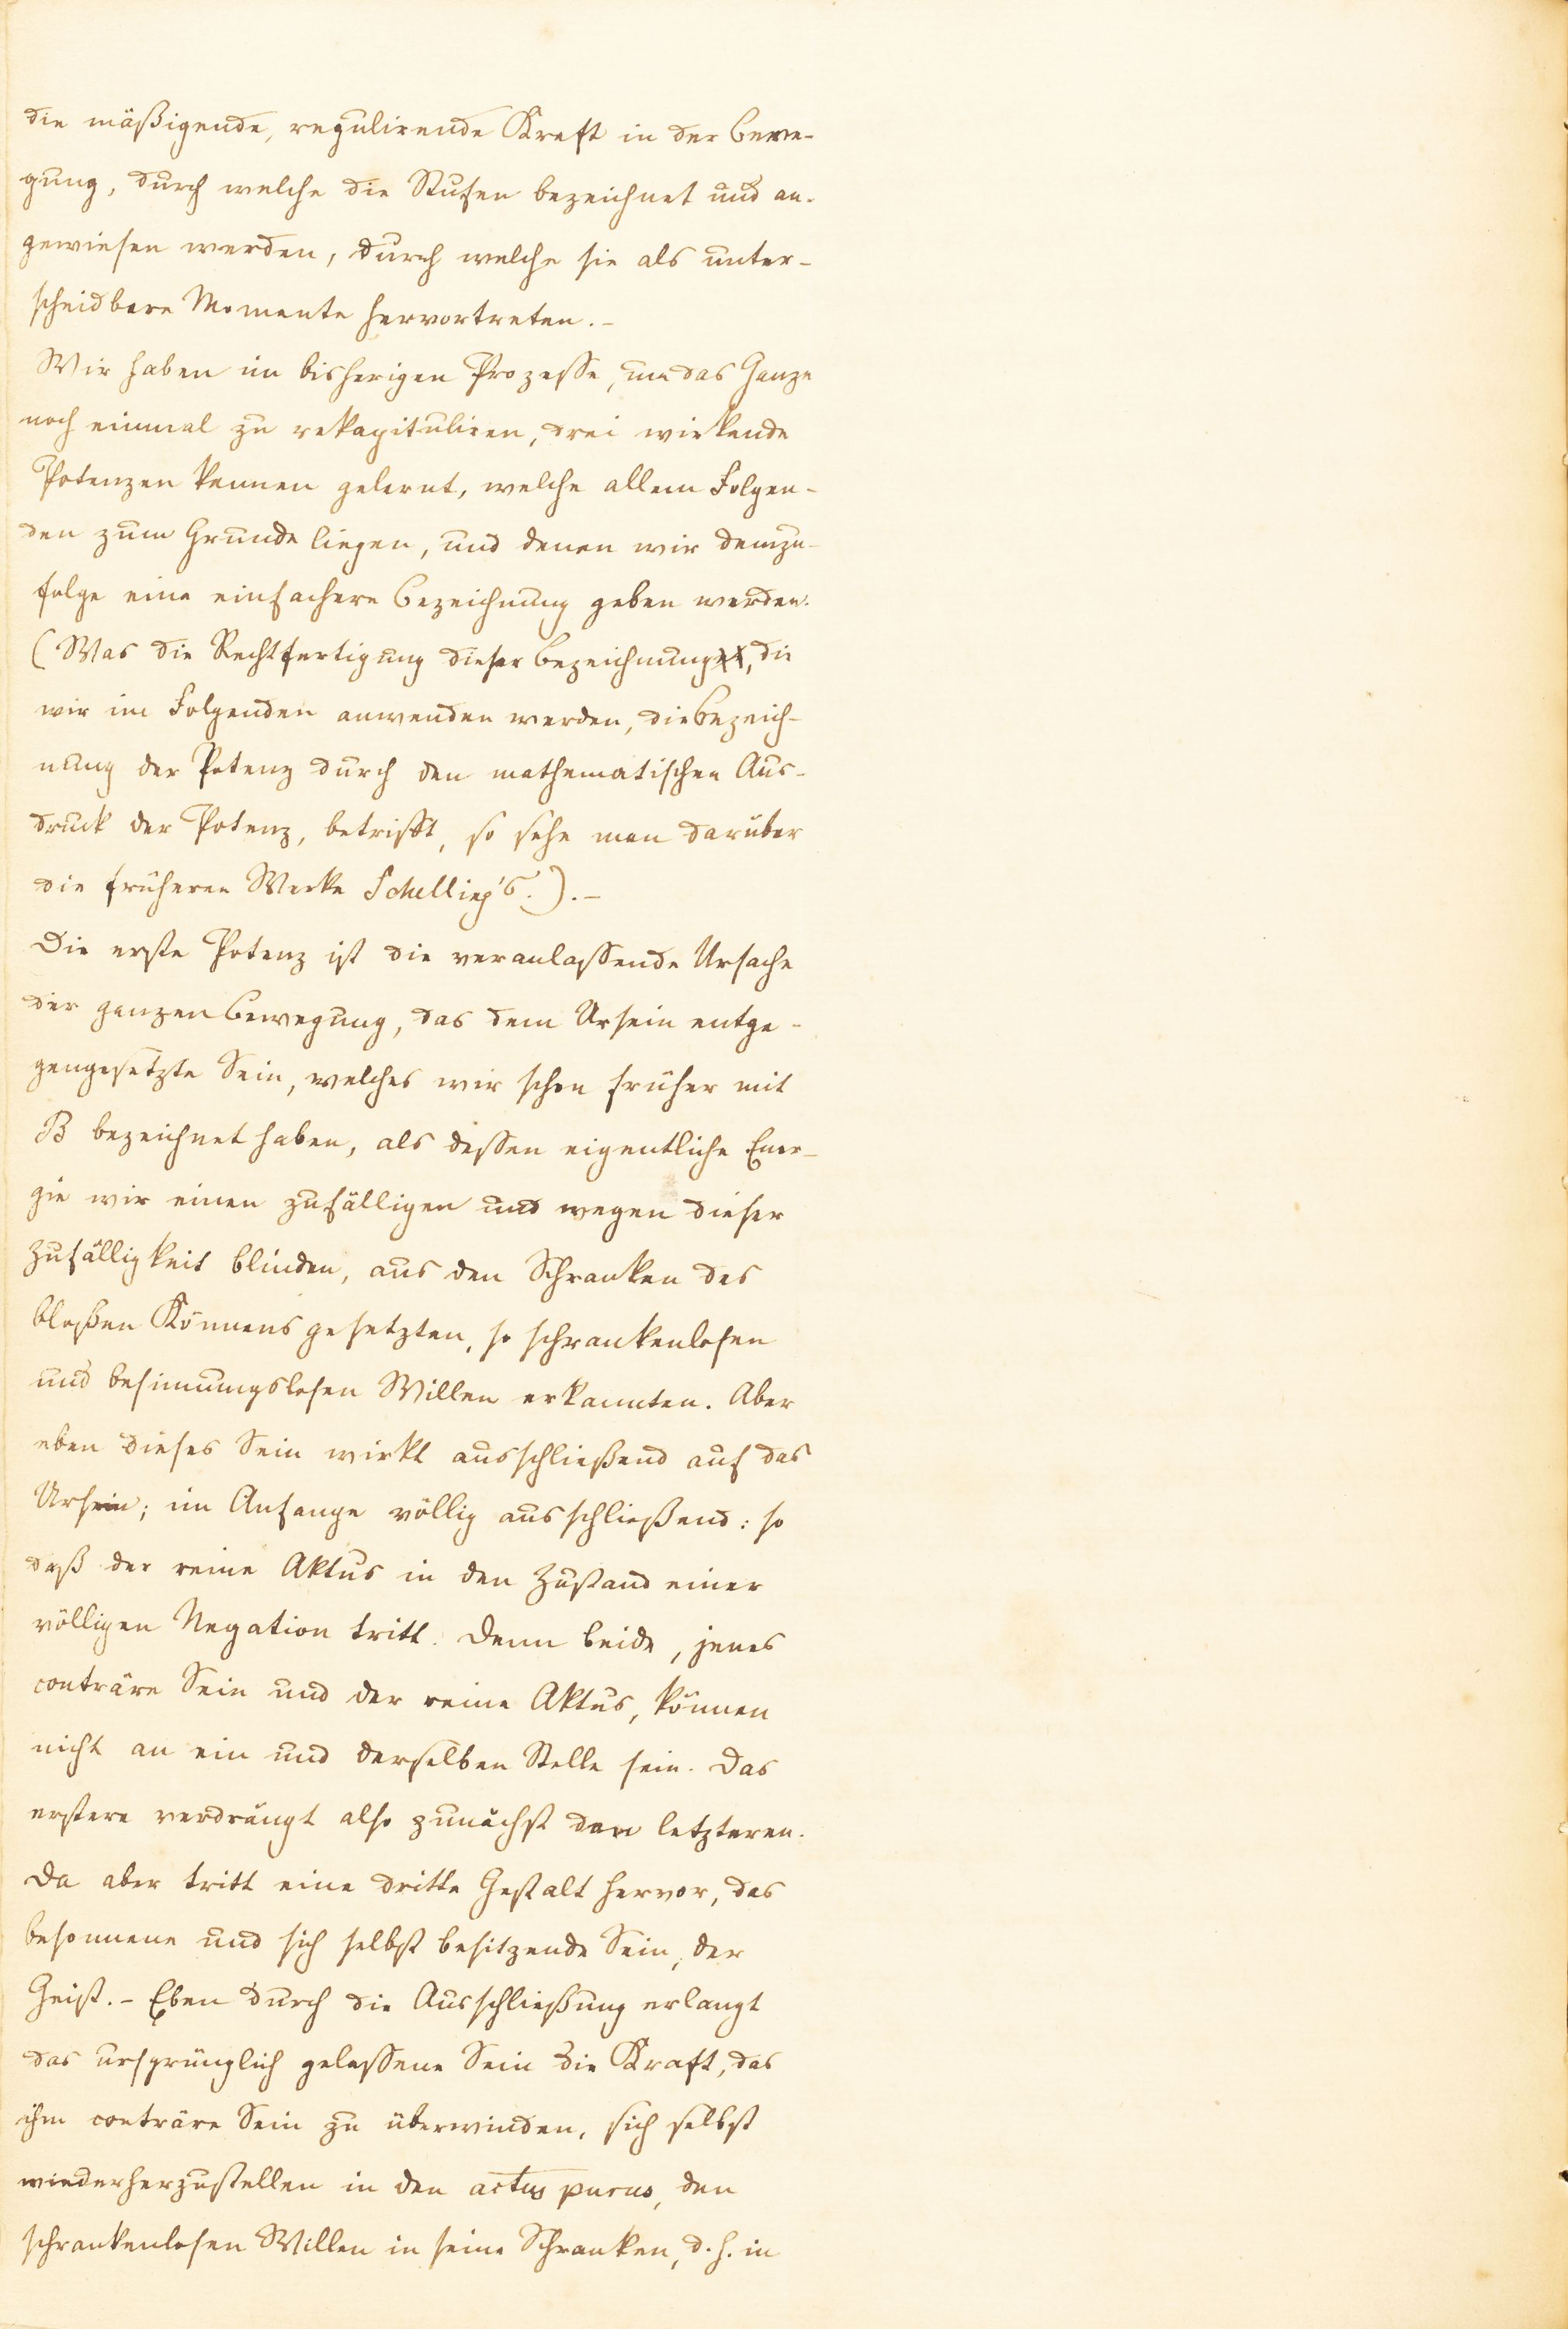 die mäßigende, regulirende Kraft in der Bewe-
gung, durch welche die Stufen bezeichnet und an-
gewiesen werden, durch welche sie als unter-
scheidbare Momente hervortreten.–
Wir haben im bisherigen Prozesse, um das Ganze
noch einmal zu rekapituliren, drei wirkende
Potenzen kennen gelernt, welche allem Folgen-
den zum Grunde liegen, und denen wir demzu-
folge eine einfachere Bezeichnung geben werden.
(Was die Rechtfertigung dieser Bezeichnung, die
wir im Folgenden anwenden werden, die Bezeich-
nung der Potenz durch den mathematischen Aus-
druck der Potenz, betrifft, so sehe man darüber
die früheren Werke Schelling's.).–
Die erste Potenz ist die veranlassende Ursache
der ganzen Bewegung, das dem Ursein entge-
gengesetzte Sein, welches wir schon früher mit
B bezeichnet haben, als dessen eigentliche Ener-
gie wir einen zufälligen und wegen dieser
Zufälligkeit blinden, aus den Schranken des
bloßen Könnens gesetzten, so schrankenlosen
und besinnungslosen Willen erkannten. Aber
eben dieses Sein wirkt ausschließend auf das
Ursein; im Anfange völlig ausschließend: so
daß der reine Aktus in den Zustand einer
völligen Negation tritt. Denn beide, jenes
conträre Sein und der reine Aktus, können
nicht an ein und derselben Stelle sein. Das
erstere verdrängt also zunächst den letzteren.
Da aber tritt eine dritte Gestalt hervor, das
besonnene und sich selbst besitzende Sein, der
Geist.– Eben durch die Ausschließung erlangt
das ursprünglich gelassene Sein die Kraft, das
ihm conträre Sein zu überwinden, sich selbst
wiederherzustellen in den actus purus, den
schrankenlosen Willen in seine Schranken, d. h. in